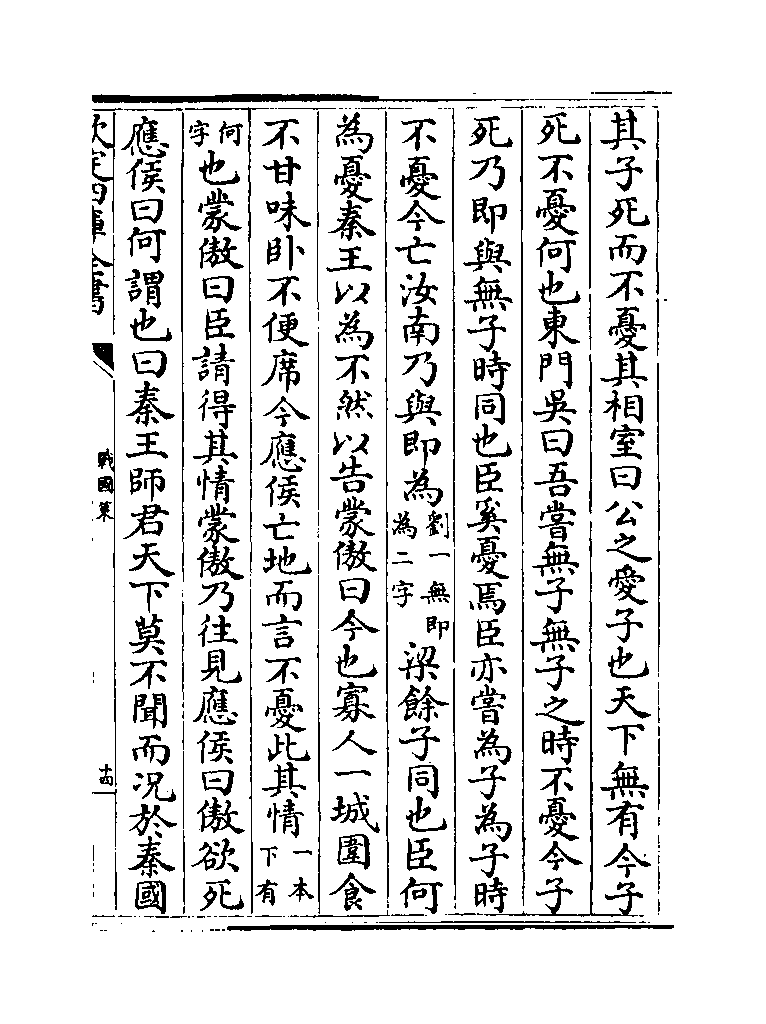 其子死而不憂其相室曰公之愛子也天下無有今子
死不憂何也東門吳曰吾嘗無子無子之時不憂今子
死乃即與無子時同也臣奚憂焉臣亦嘗為子為子時
不憂今亡汝南乃與即為劉一無即為二字梁餘子同也臣何
為憂秦王以為不然以告蒙傲曰今也寡人一城圍食
不甘味卧不便席今應侯亡地而言不憂此其情一本下有
何字也蒙傲曰臣請得其情蒙傲乃往見應侯曰傲欲死
應侯曰何謂也曰秦王師君天下莫不聞而况於秦國
欽定四庫全書
戰國策
十四